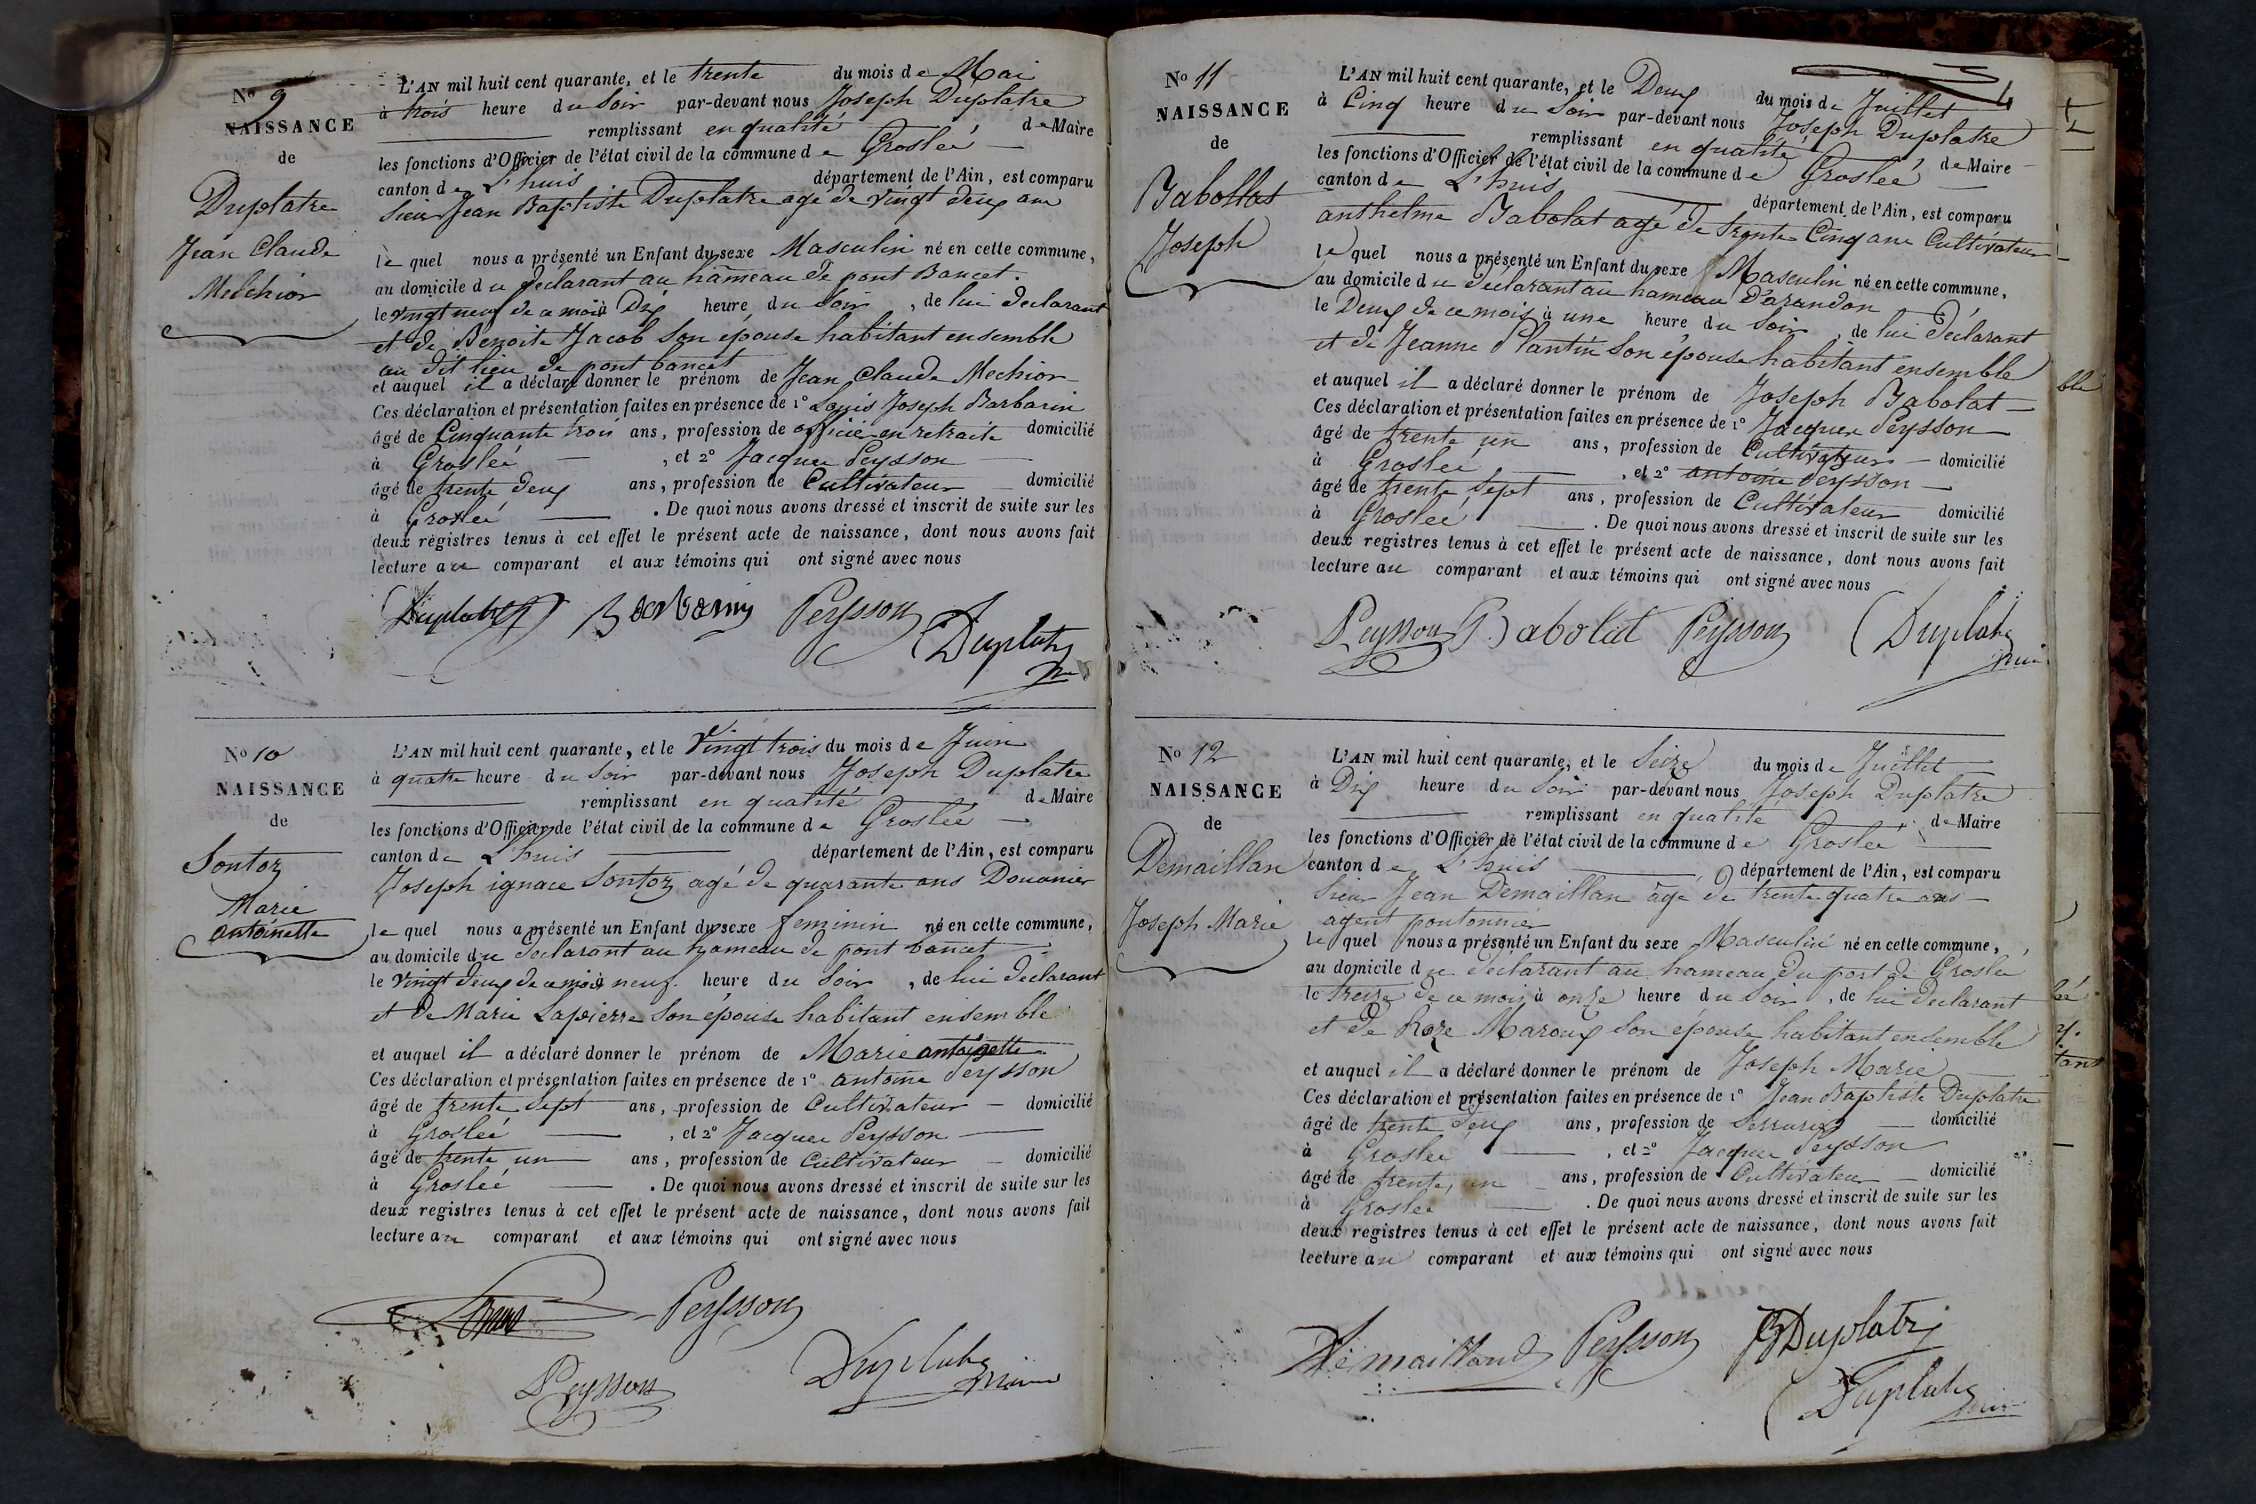 No 9
NAISSANCE
de
Duplatre
Jean Claude
Melchior
L'AN mil huit cent quarante, et le trente du mois de Mai
à trois heure du Soir par-devant nous Joseph Duplatre
remplissant en qualité de Maire
les fonctions d'Officier de l'état civil de la commune de Grosleé
canton de L'huis département de l'Ain, est comparu
Sieur Jean Baptiste Duplatre agé de vingt deux ans
le quel nous a présenté un Enfant du sexe Masculin né en cette commune,
au domicile du déclarant au hameau de pont Bancet.
le vingt neuf de ce mois à Dix heure du Soir, de lui déclarant
et de Benoite Jacob Son épouse habitant ensemble
au dit lieu de pont bancet
et auquel il a déclaré donner le prénom de Jean Claude Mechior
Ces déclaration et présentation faites en présence de 1º Louis Joseph Barbarin
âgé de Cinquante trois ans, profession de officié en retraite domicilié
à Grosleé, et 2º Jacques Peysson
âgé de trente deux ans, profession de Cultivateur domicilié
à Grosleé. De quoi nous avons dressé et inscrit de suite sur les
deux règistres tenus à cet effet le présent acte de naissance, dont nous avons fait
lecture au comparant et aux témoins qui ont signé avec nous
Duplatre Barbarin Peysson
Duplatre
No 10
NAISSANCE
de
Sontoz
Marie
antoinette
L'AN mil huit cent quarante, et le Vingt trois du mois de Juin
à quatre heure du Soir par-devant nous Joseph Duplatre
remplissant en qualité de Maire
les fonctions d'Officier de l'état civil de la commune de Grosleé
canton de L'huis département de l'Ain, est comparu
Joseph ignace Sontoz agé de quarante ans Douanier
le quel nous a présenté un Enfant du sexe feminin né en cette commune,
au domicile du déclarant au hameau de pont bancet
le vingt deux de ce mois à neuf heure du Soir, de lui déclarant
et de Marie Lapierre Son épouse habitant ensemble
et auquel il a déclaré donner le prénom de Marie antoinette
Ces déclaration et présentation faites en présence de 1º antoine Peysson
âgé de trente Sept ans, profession de Cultivateur domicilié
à Grosleé, et 2º Jacques Peysson
âgé de trente un ans, profession de Cultivateur domicilié
à Grosleé. De quoi nous avons dressé et inscrit de suite sur les
deux registres tenus à cet effet le présent acte de naissance, dont nous avons fait
lecture au comparant et aux témoins qui ont signé avec nous
Peysson
Peysson Duplatre maire
No 11
NAISSANCE
de
Babollat
Joseph
L'AN mil huit cent quarante, et le Deux du mois de Juillet
à Cinq heure du Soir par-devant nous Joseph Duplatre
remplissant en qualité de Maire
les fonctions d'Officier de l'état civil de la commune de Grosleé
canton de L'huis département de l'Ain, est comparu
anthelme Babolat agé de trente Cinq ans Cultivateur
le quel nous a présenté un Enfant du sexe Masculin né en cette commune,
au domicile du déclarant au hameau d'arandon
le Deux de ce mois à une heure du Soir, de lui déclarant
et de Jeanne Plantin Son épouse habitant ensemble
et auquel il a déclaré donner le prénom de Joseph Babolat
Ces déclaration et présentation faites en présence de 1º Jacques Peysson
âgé de trente un ans, profession de Cultivateur domicilié
à Grosleé, et 2º antoine Peysson
âgé de trente Sept ans, profession de Cultivateur domicilié
à Grosleé. De quoi nous avons dressé et inscrit de suite sur les
deux registres tenus à cet effet le présent acte de naissance, dont nous avons fait
lecture au comparant et aux témoins qui ont signé avec nous
Peysson Babolat Peysson Duplatre
No 12
NAISSANCE
de
Demaillan
Joseph Marie
L'AN mil huit cent quarante, et le Seize du mois de Juillet
à Dix heure du Soir par-devant nous Joseph Duplatre
remplissant en qualité de Maire
les fonctions d'Officier de l'état civil de la commune de Grosleé
canton de L'huis département de l'Ain, est comparu
Sieur Jean Demaillan agé de trente quatre ans
agent pontonnier
le quel nous a présenté un Enfant du sexe Masculin né en cette commune,
au domicile du déclarant au hameau du port de Groslee
le treize de ce mois à onze heure du Soir, de lui déclarant
et de Roze Maroux Son épouse habitant ensemble
et auquel il a déclaré donner le prénom de Joseph Marie
Ces déclaration et présentation faites en présence de 1º Jean Baptiste Duplatre
âgé de trente deux ans, profession de Serrurier domicilié
à Grosleé, et 2º Jacques Peysson
âgé de trente un ans, profession de Cultivateur domicilié
à Grosleé. De quoi nous avons dressé et inscrit de suite sur les
deux registres tenus à cet effet le présent acte de naissance, dont nous avons fait
lecture au comparant et aux témoins qui ont signé avec nous
Demailland Peysson JBDuplatre
Duplatre